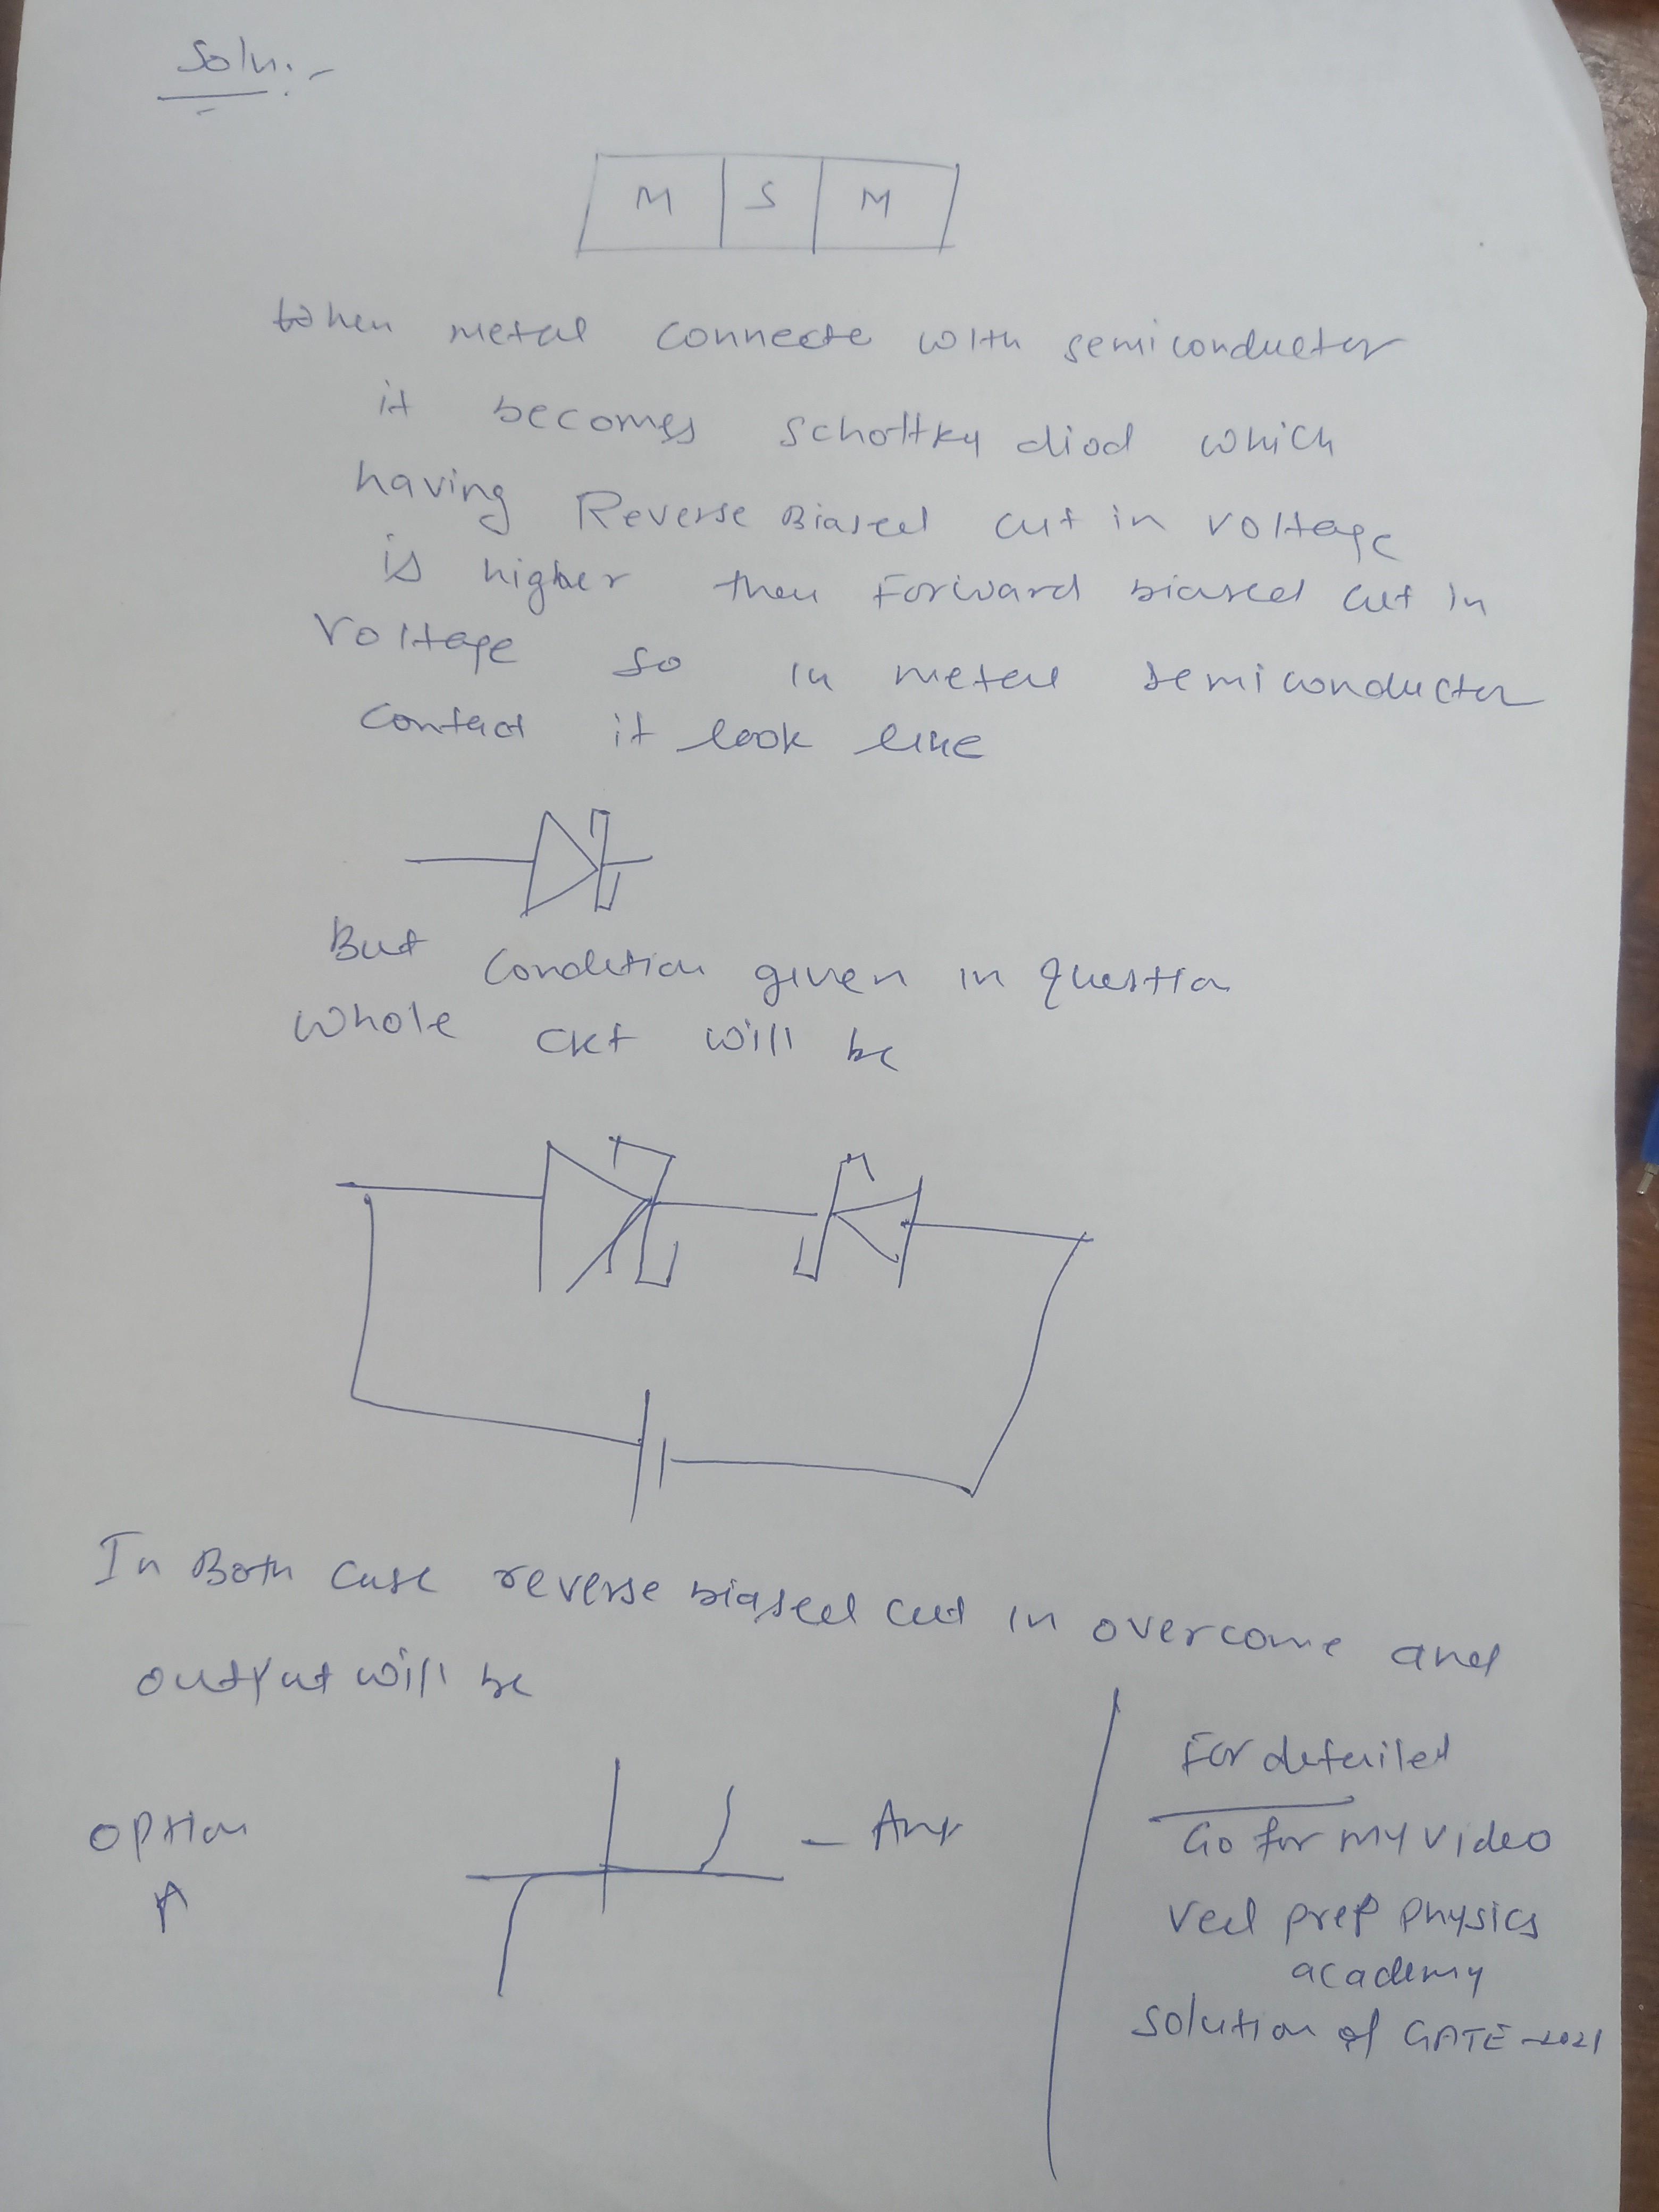 Soln:-
M S M
when metal connecte with semiconductor
it becomes schottky diod which
having Reverse Biased cut in voltage
is higher then Forward biased cut in
voltage so in metal semiconductor
contact it look like
But condition given in question
whole ckt will be
In Both case reverse biased cut in overcome and
output will be
option
A
- Ans
For detailed
Go for my video
Ved prep physics
academy
solution of GATE-2021